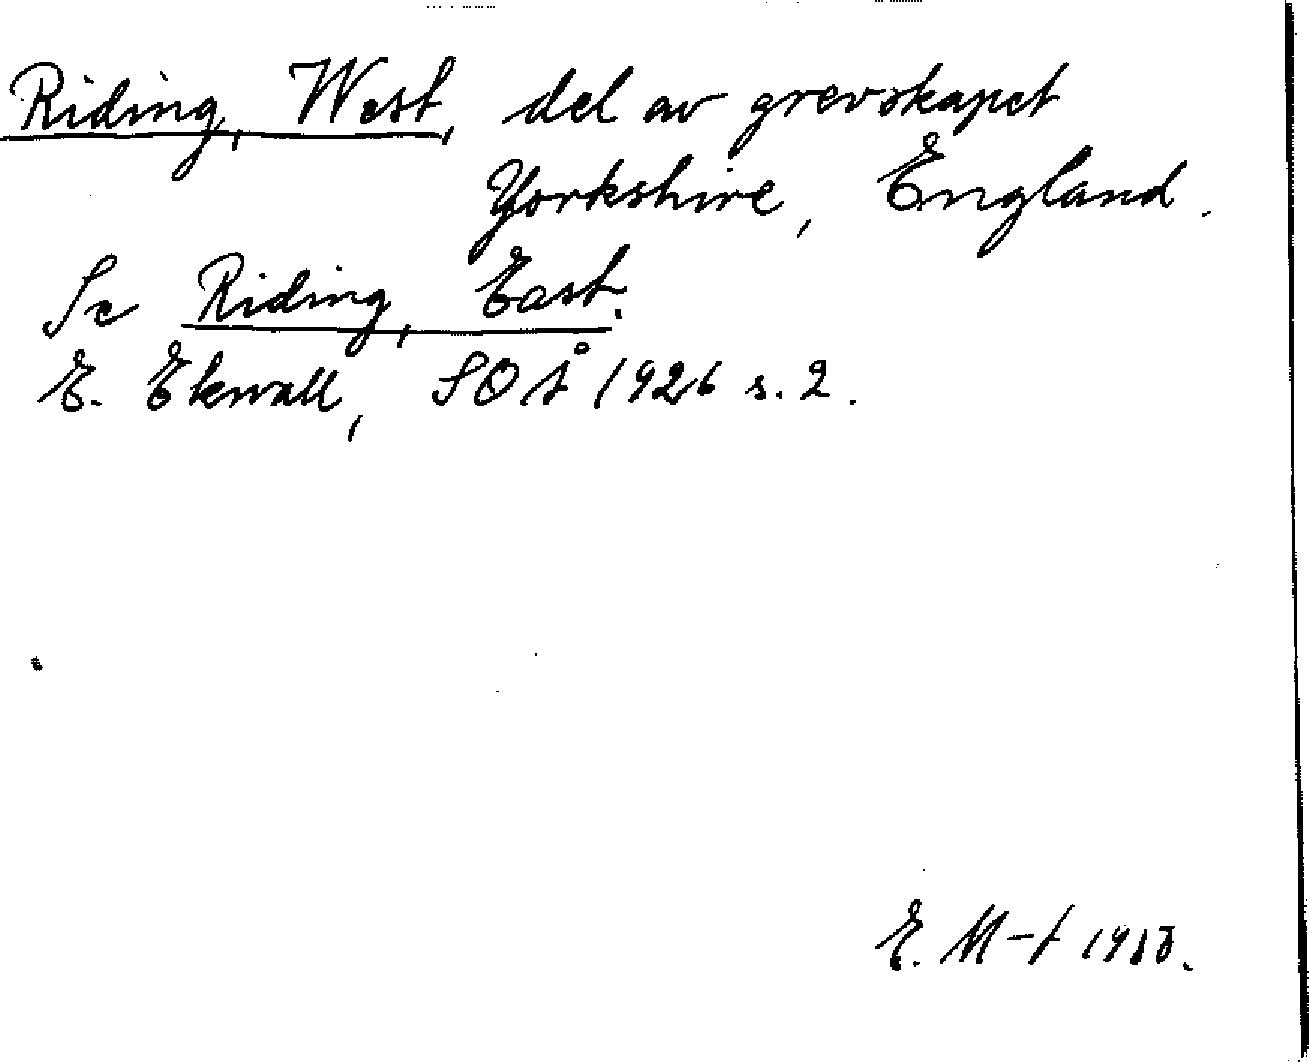 Riding, West, del av grevskapet
Yorkshire, England.
Se Riding, East.
E. Ekwall, SOÅ 1926 s. 2.
E. M-t